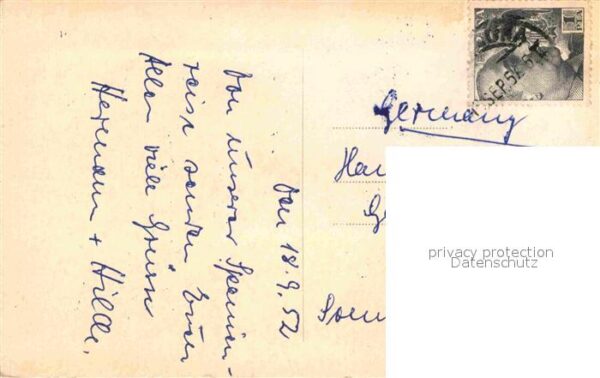 Den 18.9.52
Von unserer Spanien-
reise senden Euch
Allen viele Grüsse
Hermann + Hilde.
Germany
Ha
1 PTA
SEP.52
privacy protection
Datenschutz